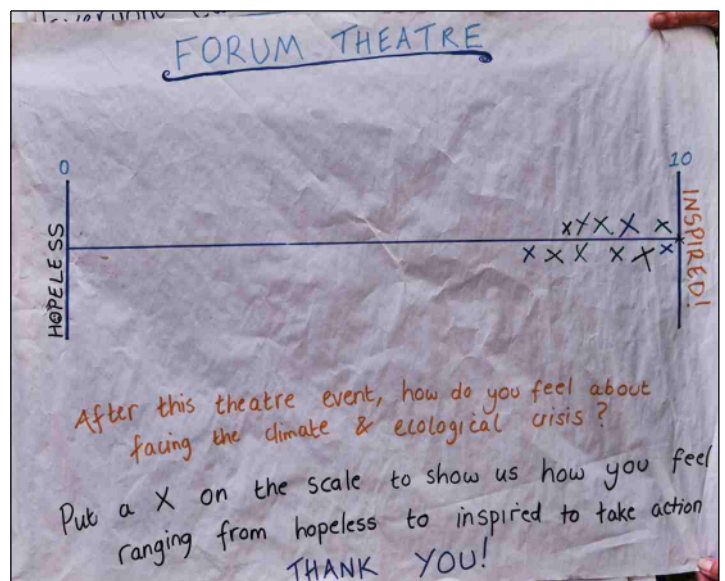 FORUM THEATRE
0
10
HOPELESS
INSPIRED!
X X X X X
X X X X X X X
After this theatre event, how do you feel about
facing the climate & ecological crisis?
Put a X on the scale to show us how you feel
ranging from hopeless to inspired to take action
THANK YOU!